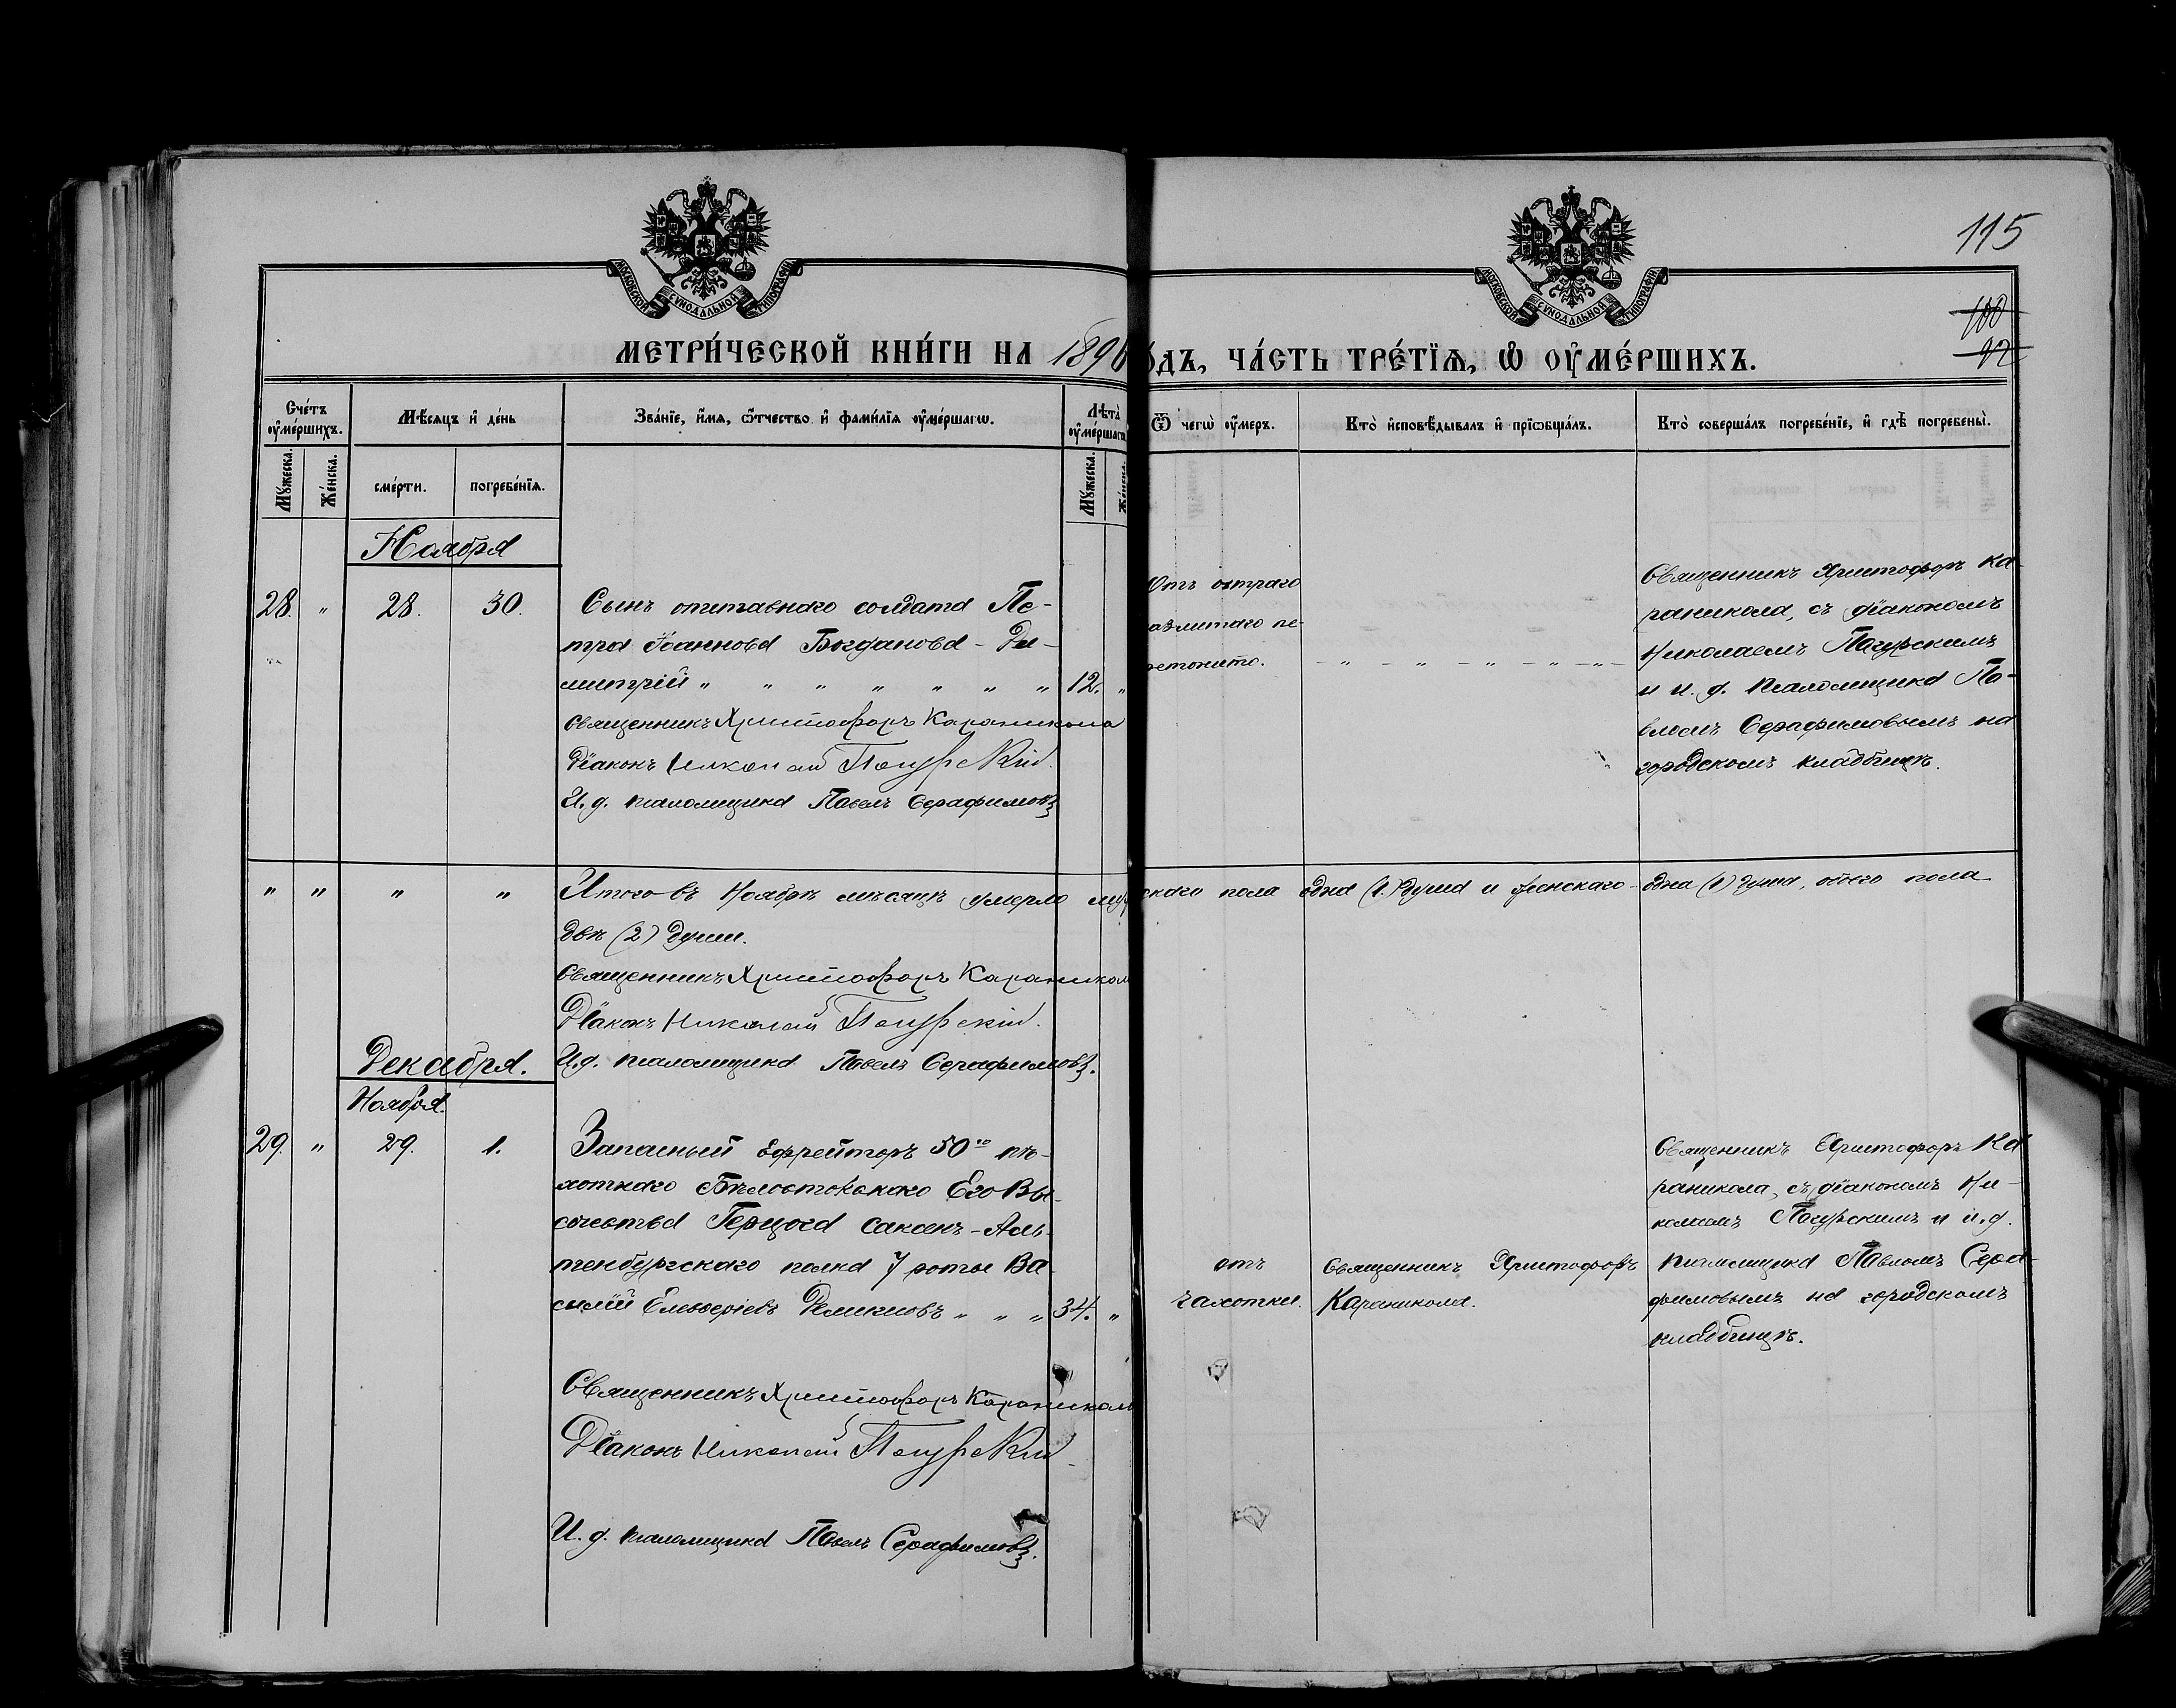 МОСКОВСКОЙ СѴНОДАЛЬНОЙ ТИПОГРАФІИ
МОСКОВСКОЙ СѴНОДАЛЬНОЙ ТИПОГРАФІИ
115
100
92
МЕТРИ́ЧЕСКОЙ КНИ́ГИ НА 1896
о́дъ, ЧА́СТЬ ТРЕ́ТІѦ, Ѽ ОУ҆МЕ́РШИХЪ.
Сче́тъ оу҆ме́ршихъ.
Мѣ́сѧцъ и҆ де́нь
Зва́нїе, и҆́мѧ, ѻ҆́тчество и҆ фами́лїѧ оу҆ме́ршагѡ.
Лѣта̀ оу҆ме́ршаг
Ѿ чегѡ̀ оу҆́меръ.
Кто̀ и҆сповѣ́дывалъ и҆ прїѡбща́лъ.
Кто̀ соверша́лъ погребе́нїе, и҆ гдѣ̀ погребены̀.
Мꙋ́жеска.
Же́нска.
сме́рти.
погребе́нїѧ.
Мꙋ́жеска.
Ноября
28. " 28. 30.
Сынъ отставнаго солдата Пе-
тра Іоаннова Богданова - Ди-
митрій " " " " " " " 12. "
Священникъ Христофоръ Караникола
Діаконъ Николай
И. д. псаломщика Павелъ Серафимовъ
Отъ остраго
разлитаго пе-
ретонита.
- " - " - " - " - " -
Священникъ Христофоръ Ка-
раникола, съ діакономъ
Николаемъ
и и. д. псаломщика Па-
вломъ Серафимовымъ на
городскомъ кладбищѣ.
" " " "
Итого въ Ноябрѣ мѣсяцѣ умерло муж
скаго пола одна (1.) душа и женскаго - одна (1) душа, обоего пола
двѣ (2) души.
Священникъ Христофоръ Караникол
Діаконъ Николай
И. д. псаломщика Павелъ Серафимовъ.
Декабря.
Ноября.
29. " 29. 1.
Запасный Ефрейторъ 50го пѣ-
хотнаго Бѣлостокскаго Его Вы-
сочества Герцога Саксенъ-Аль-
тенбургскаго полка 7 роты Ва-
силій Елевѳеріевъ " " " 34. "
Священникъ Христофоръ Караникол
Діаконъ Николай
И. д. псаломщика Павелъ Серафимовъ.
отъ
чахотки.
Священникъ Христофоръ
Караникола.
Священникъ Христофоръ Ка
раникола, съ діакономъ Ни-
колаемъ и и. д.
псаломщика Павломъ Сера-
фимовымъ на городскомъ
кладбищѣ.